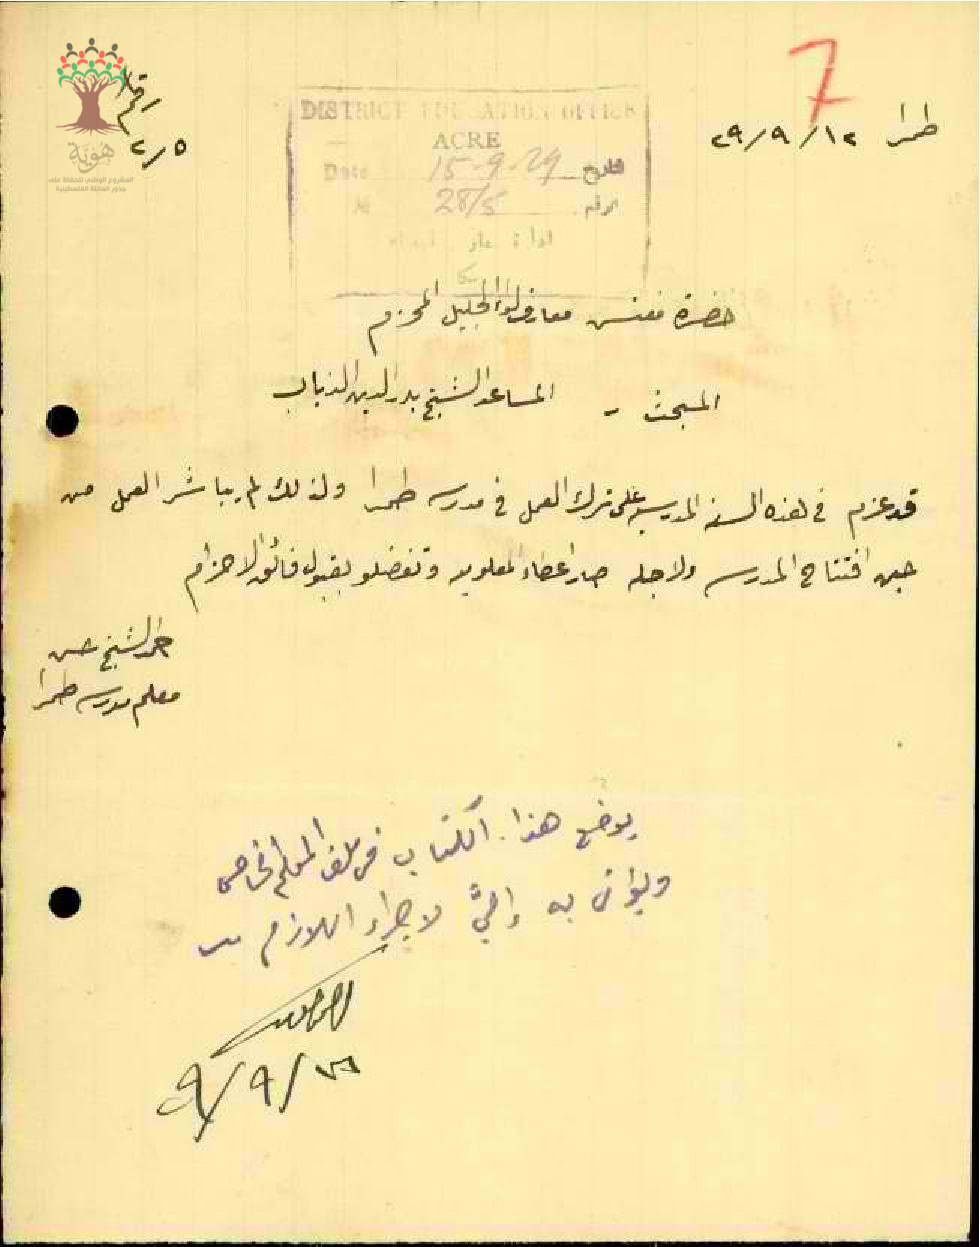 7
طمرا ١٢/٩/٢٩
رقم
٢/٥
هوية
المشروع الوطني للحفاظ على
جذور العائلة الفلسطينية
DISTRICT EDUCATION OFFICE
ACRE
Date 15-9-29 تاريخ
28/5 الرقم
ادارة
حضرة مفتش معارف لواء الجليل المحترم
المبحث - المساعد الشيخ بدر الدين الذياب
قد عزم في هذه السنة المدرسية على ترك العمل في مدرسة طمرا ولذلك لم يباشر العمل من
حين افتتاح المدرسة ولاجله صار اعطاء المعلومية وتفضلو بقبول فائق الاحترام
الشيخ حسن
معلم مدرسة طمرا
يوضع هذا الكتاب في ملف المعلم الخاص
ويؤتى به إليّ لاجراء اللازم